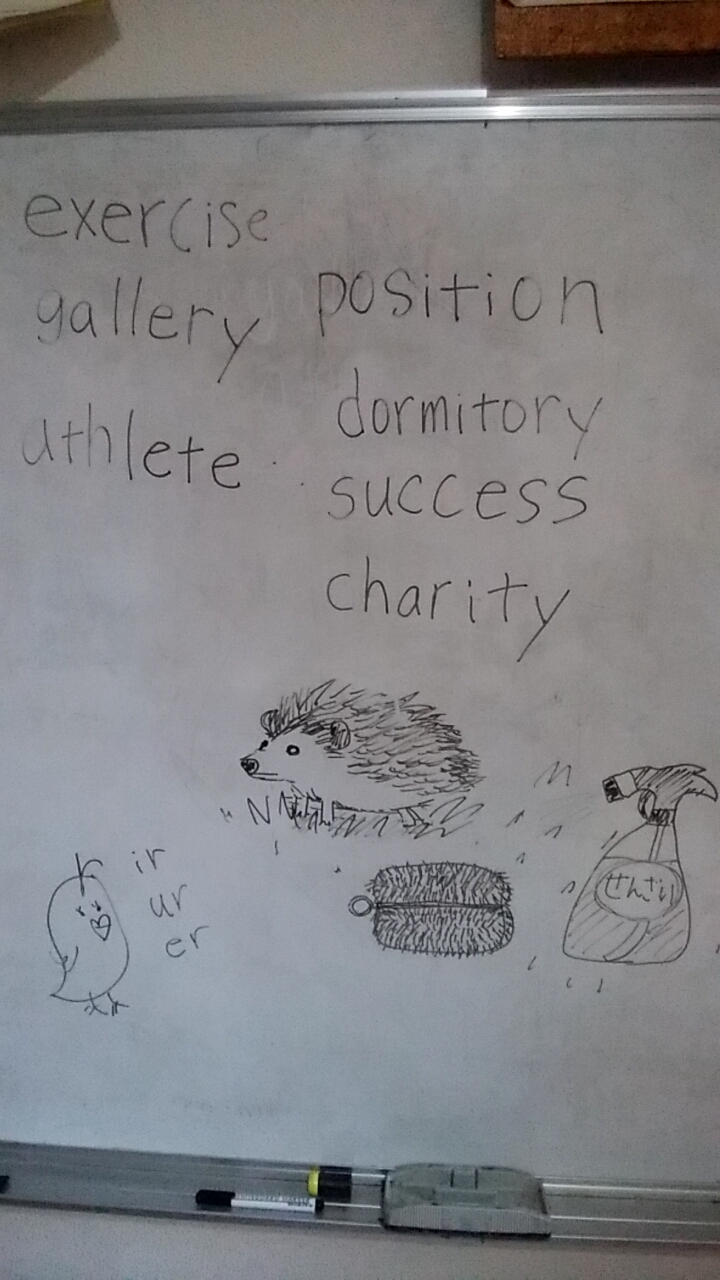 exercise
gallery
athlete
position
dormitory
success
charity
ir
ur
er
せんざい